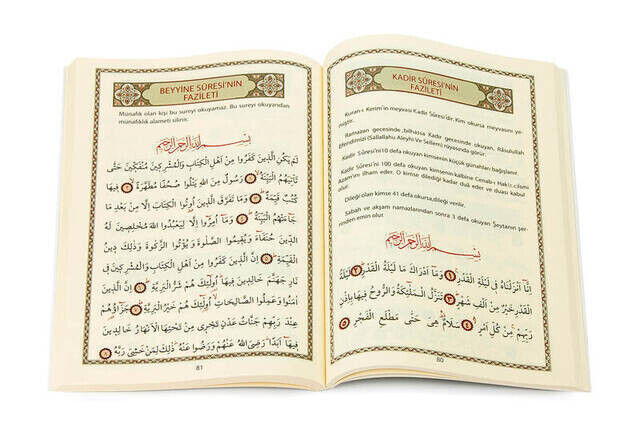 KADİR SÛRESİ'NİN
FAZİLETİ
Kuran-ı Kerim'in meyvası Kadir Sûresi'dir. Kim okursa meyvasını ye-
miştir.
Ramazan gecesinde ,bilhassa Kadir gecesinde okuyan, Râsulullah
Efendimizi (Sallallahu Aleyhi Ve Sellem) rüyasında görür.
Kadir Sûresi'ni10 defa okuyan kimsenin küçük günahları bağışlanır.
Kadir Sûresi'ni 100 defa okuyan kimsenin kalbine Cenab-ı Hak
Azam'ını ilham eder. O kimse dilediği kadar duâ eder ve duası kabul
olur.
Dileği olan kimse 41 defa okursa,dileği verilir.
Sabah ve akşam namazlarından sonra 3 defa okuyan Şeytanın şer-
rinden emin olur.
بِسْمِ اللّٰهِ الرَّحْمٰنِ الرَّحِيمِ
اِنَّٓا اَنْزَلْنَاهُ فِى لَيْلَةِ الْقَدْرِ ﴿١﴾ وَمَٓا اَدْرٰيكَ مَا لَيْلَةُ الْقَدْرِ ﴿٢﴾ لَيْلَةُ
الْقَدْرِ خَيْرٌ مِنْ اَلْفِ شَهْرٍ ﴿٣﴾ تَنَزَّلُ الْمَلٰٓئِكَةُ وَالرُّوحُ فِيهَا بِاِذْنِ
رَبِّهِمْ مِنْ كُلِّ اَمْرٍ ﴿٤﴾ سَلَامٌ هِىَ حَتّٰى مَطْلَعِ الْفَجْرِ ﴿٥﴾
80
BEYYİNE SÛRESİ'NİN
FAZİLETİ
Münafık olan kişi bu sureyi okuyamaz. Bu sureyi okuyandan
münafıklık alameti silinir.
بِسْمِ اللّٰهِ الرَّحْمٰنِ الرَّحِيمِ
لَمْ يَكُنِ الَّذِينَ كَفَرُوا مِنْ اَهْلِ الْكِتَابِ وَالْمُشْرِكِينَ مُنْفَكِّينَ حَتّٰى
تَأْتِيَهُمُ الْبَيِّنَةُ ﴿١﴾ رَسُولٌ مِنَ اللّٰهِ يَتْلُوا صُحُفًا مُطَهَّرَةً ﴿٢﴾ فِيهَا
كُتُبٌ قَيِّمَةٌ ﴿٣﴾ وَمَا تَفَرَّقَ الَّذِينَ اُوتُوا الْكِتَابَ اِلَّا مِنْ بَعْدِ مَا
جَٓاءَتْهُمُ الْبَيِّنَةُ ﴿٤﴾ وَمَٓا اُمِرُٓوا اِلَّا لِيَعْبُدُوا اللّٰهَ مُخْلِصِينَ لَهُ
الدِّينَ حُنَفَٓاءَ وَيُقِيمُوا الصَّلٰوةَ وَيُؤْتُوا الزَّكٰوةَ وَذٰلِكَ دِينُ
الْقَيِّمَةِ ﴿٥﴾ اِنَّ الَّذِينَ كَفَرُوا مِنْ اَهْلِ الْكِتَابِ وَالْمُشْرِكِينَ فِى
نَارِ جَهَنَّمَ خَالِدِينَ فِيهَا اُولٰٓئِكَ هُمْ شَرُّ الْبَرِيَّةِ ﴿٦﴾ اِنَّ الَّذِينَ
اٰمَنُوا وَعَمِلُوا الصَّالِحَاتِ اُولٰٓئِكَ هُمْ خَيْرُ الْبَرِيَّةِ ﴿٧﴾ جَزَٓاؤُهُمْ
عِنْدَ رَبِّهِمْ جَنَّاتُ عَدْنٍ تَجْرِى مِنْ تَحْتِهَا الْاَنْهَارُ خَالِدِينَ
فِيهَٓا اَبَدًا رَضِىَ اللّٰهُ عَنْهُمْ وَرَضُوا عَنْهُ ذٰلِكَ لِمَنْ خَشِىَ رَبَّهُ ﴿٨﴾
81